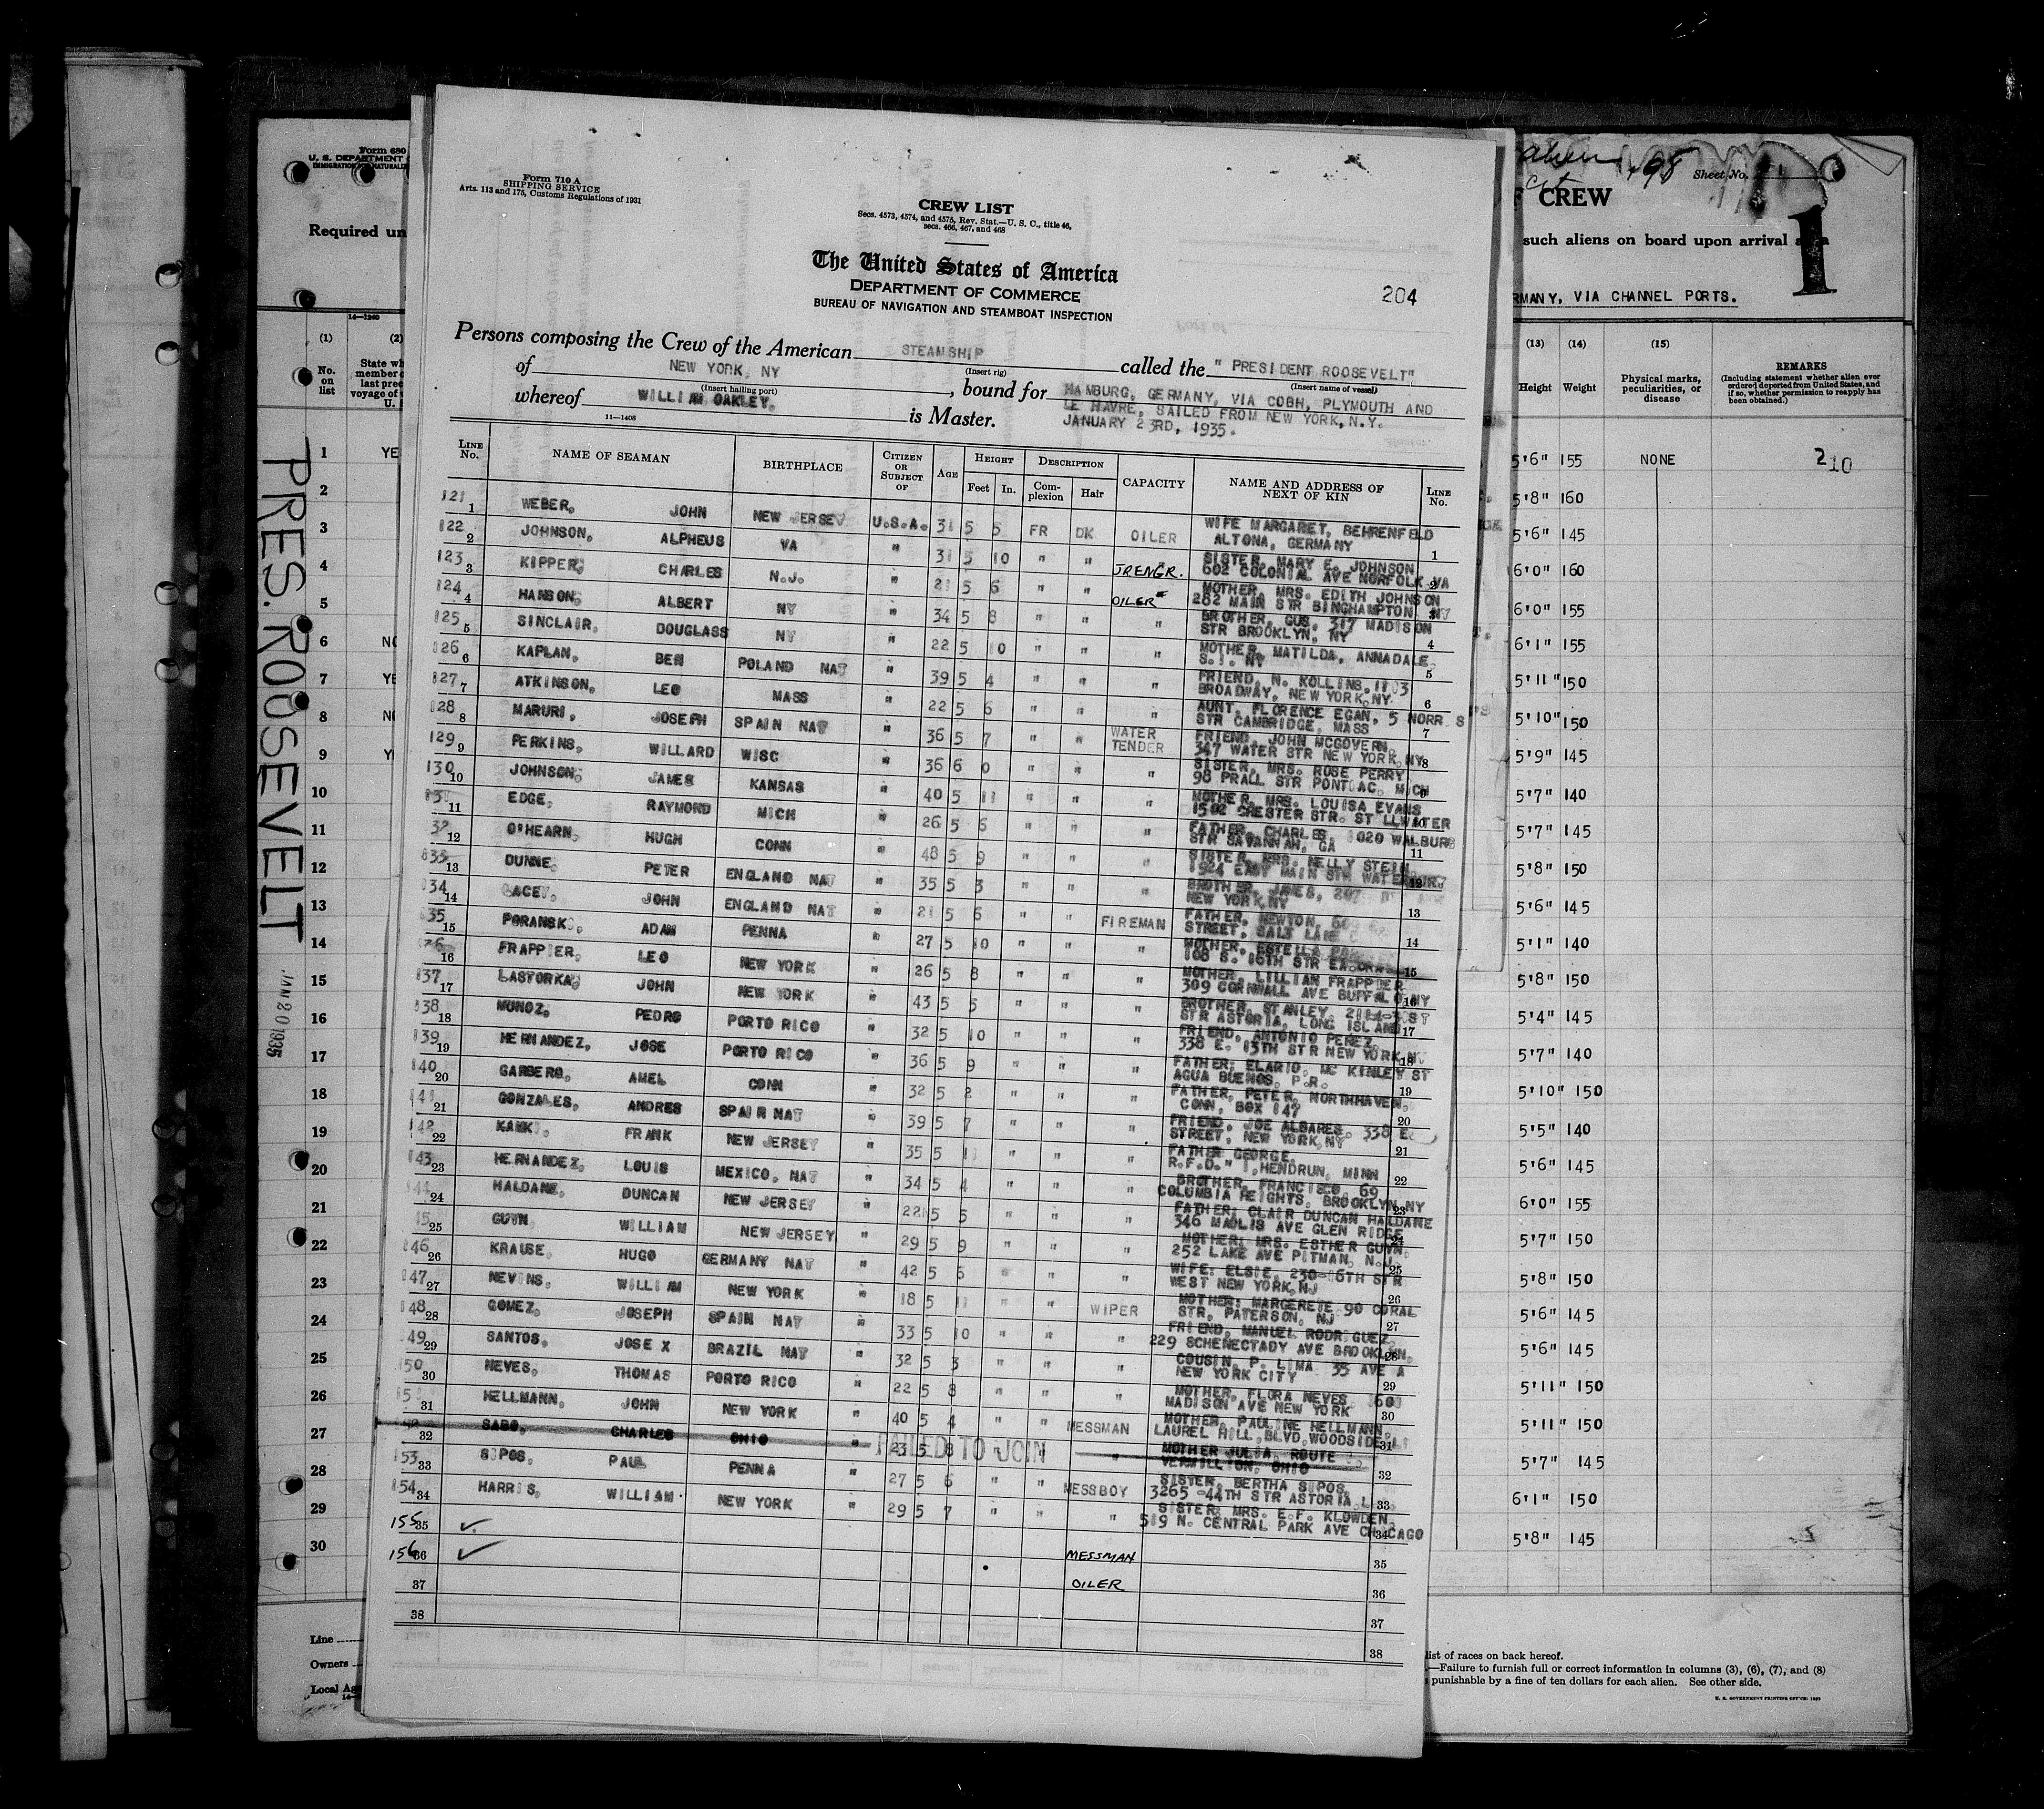 Form 710 A
SHIPPING SERVICE
Arts. 113 and 175, Customs Regulations of 1931
CREW LIST
Secs. 4573, 4574, and 4575, Rev. Stat.—U. S. C., title 46,
secs. 466, 467, and 468
The United States of America
DEPARTMENT OF COMMERCE
BUREAU OF NAVIGATION AND STEAMBOAT INSPECTION
204
Persons composing the Crew of the American STEAMSHIP called the "PRESIDENT ROOSEVELT"
(Insert rig) (Insert name of vessel)
of NEW YORK, NY, bound for HAMBURG, GERMANY, VIA COBH, PLYMOUTH AND
(Insert hailing port)
whereof WILLIAM OAKLEY, is Master. LE HAVRE, SAILED FROM NEW YORK, N.Y.
11—1408
JANUARY 23RD, 1935.
LINE No. NAME OF SEAMAN BIRTHPLACE CITIZEN OR SUBJECT OF AGE HEIGHT Feet In. DESCRIPTION Complexion Hair CAPACITY NAME AND ADDRESS OF NEXT OF KIN LINE No.
121 1 WEBER, JOHN NEW JERSEY U.S.A. 31 5 5 FR DK OILER WIFE MARGARET, BEHRENFELD ALTONA, GERMANY 1
122 2 JOHNSON, ALPHEUS VA " 31 5 10 " " JR ENGR. SISTER, MARY E. JOHNSON 602 COLONIAL AVE NORFOLK VA 2
123 3 KIPPER, CHARLES N.J. " 21 5 6 " " OILER MOTHER, MRS. EDITH JOHNSON 282 MAIN STR BINGHAMPTON NY
124 4 HANSON, ALBERT NY " 34 5 8 " " " BROTHER, GUS, 317 MADISON STR BROOKLYN, NY 4
125 5 SINCLAIR, DOUGLASS NY " 22 5 10 " " " MOTHER, MATILDA, ANNADALE S.I. NY 5
126 6 KAPLAN, BEN POLAND NAT " 39 5 4 " " " FRIEND, N. KOLLINS, 1103 BROADWAY, NEW YORK, NY 6
127 7 ATKINSON, LEO MASS " 22 5 6 " " " AUNT, FLORENCE EGAN, 5 NORR S STR CAMBRIDGE, MASS 7
128 8 MARURI, JOSEPH SPAIN NAT " 36 5 7 " " WATER TENDER FRIEND, JOHN MCGOVERN, 347 WATER STR NEW YORK, NY 8
129 9 PERKINS, WILLARD WISC " 36 6 0 " " " SISTER, MRS. ROSE PERRY 98 PRALL STR PONTIAC, MICH 9
130 10 JOHNSON, JAMES KANSAS " 40 5 11 " " " MOTHER, MRS. LOUISA EVANS 1502 CHESTER STR. STILLWATER 10
131 11 EDGE, RAYMOND MICH " 26 5 6 " " " FATHER, CHARLES, 1020 WALBURG STR SAVANNAH, GA 11
32 12 O'HEARN, HUGH CONN " 48 5 9 " " " SISTER, MRS. NELLY STEIN 1924 EAST MAIN STR WATERBURY 12
133 13 DUNNE, PETER ENGLAND NAT " 35 5 3 " " " BROTHER, JAMES, 207 NEW YORK, NY 13
134 14 LACEY, JOHN ENGLAND NAT " 21 5 6 " " FIREMAN FATHER, NEWTON, STREET, SALT LAKE 14
135 15 PORANSKI, ADAM PENNA " 27 5 10 " " " MOTHER, ESTELLA 108 S. 16TH STR 15
136 16 FRAPPIER, LEO NEW YORK " 26 5 8 " " " MOTHER, LILLIAN FRAPPIER 309 CORNWALL AVE BUFFALO NY 16
137 17 LASTORKA, JOHN NEW YORK " 43 5 5 " " " BROTHER, STANLEY, STR ASTORIA, LONG ISLAND 17
138 18 MUNOZ, PEDRO PORTO RICO " 32 5 10 " " " FRIEND, ANTONIO PEREZ, 338 E. 13TH STR NEW YORK, N 18
139 19 HERNANDEZ, JOSE PORTO RICO " 36 5 9 " " " FATHER, ELARIO, MC KINLEY ST AGUA BUENOS, P.R. 19
140 20 GARBERG, AMEL CONN " 32 5 2 " " " FATHER, PETER, NORTHHAVEN, CONN, BOX 147 20
141 21 GONZALES, ANDRES SPAIN NAT " 39 5 7 " " " FRIEND, JOE ALBARES, 338 E. STREET, NEW YORK, NY 21
142 22 KANKI, FRANK NEW JERSEY " 35 5 11 " " " FATHER GEORGE, R.F.D." 1, HENDRUN, MINN 22
143 23 HERNANDEZ, LOUIS MEXICO, NAT " 34 5 4 " " " BROTHER, FRANCISCO, 69 COLUMBIA HEIGHTS, BROOKLYN, NY 23
144 24 HALDANE, DUNCAN NEW JERSEY " 22 5 5 " " " FATHER, CLAIR DUNCAN HALDANE 346 MAOLIS AVE GLEN RIDGE 24
145 25 GUYN, WILLIAM NEW JERSEY " 29 5 9 " " " MOTHER, MRS. ESTHER GUYN, 252 LAKE AVE PITMAN, N.J. 25
146 26 KRAUSE, HUGO GERMANY NAT " 42 5 6 " " " WIFE, ELSIE, 230-16TH STR WEST NEW YORK, NJ 26
147 27 NEVINS, WILLIAM NEW YORK " 18 5 11 " " WIPER MOTHER, MARGERETE 90 CORAL STR, PATERSON, NJ 27
148 28 GOMEZ, JOSEPH SPAIN NAT " 33 5 10 " " " FRIEND, MANUEL RODRIGUEZ, 229 SCHENECTADY AVE BROOKLYN, 28
149 29 SANTOS, JOSE X BRAZIL NAT " 32 5 3 " " " COUSIN, P. LIMA 35 AVE A NEW YORK CITY 29
150 30 NEVES, THOMAS PORTO RICO " 22 5 8 " " " MOTHER, FLORA NEVES, MADISON AVE NEW YORK 30
151 31 HELLMANN, JOHN NEW YORK " 40 5 4 " " MESSMAN MOTHER, PAULINE HELLMANN, LAUREL HILL, BLVD, WOODSIDE, LI 31
152 32 SABO, CHARLES OHIO " 23 5 8 " " " FAILED TO JOIN MOTHER JULIA, ROUTE VERMILLION, OHIO 32
153 33 SIPOS, PAUL PENNA " 27 5 6 " " MESSBOY SISTER, BERTHA SIPOS, 3265-44TH STR ASTORIA, L 33
154 34 HARRIS, WILLIAM NEW YORK " 29 5 7 " " " SISTER, MRS. E.F. KLOWDEN, 519 N. CENTRAL PARK AVE CHICAGO 34
155 35 ✓ MESSMAN 35
156 36 ✓ OILER 36
37 37
38 38
Form 680
U. S. DEPARTMENT
Required un
14—1240
(1) (2)
No. on list
State wh
member o
last prec
voyage of
U. S.
1 YE
2
3
4
5
6 NO
7 YE
8 NO
9 YE
10
11
12
13
14
15
16
17
18
19
20
21
22
23
24
25
26
27
28
29
30
Line
Owners
Local Ag
PRES. ROOSEVELT
JAN 20 1935
Sheet No. 1
498
F CREW
such aliens on board upon arrival
1
RMANY, VIA CHANNEL PORTS.
(13) (14) (15)
Height Weight Physical marks, peculiarities, or disease
REMARKS
(Including statement whether alien ever
ordered deported from United States, and
if so, whether permission to reapply has
been obtained.)
5'6" 155 NONE 210
5'8" 160
5'6" 145
6'0" 160
6'0" 155
6'1" 155
5'11" 150
5'10" 150
5'9" 145
5'7" 140
5'7" 145
5'8" 150
5'6" 145
5'1" 140
5'8" 150
5'4" 145
5'7" 140
5'10" 150
5'5" 140
5'6" 145
6'0" 155
5'7" 150
5'8" 150
5'6" 145
5'6" 145
5'11" 150
5'11" 150
5'7" 145
6'1" 150
5'8" 145
list of races on back hereof.
—Failure to furnish full or correct information in columns (3), (6), (7), and (8)
punishable by a fine of ten dollars for each alien. See other side.
U. S. GOVERNMENT PRINTING OFFICE